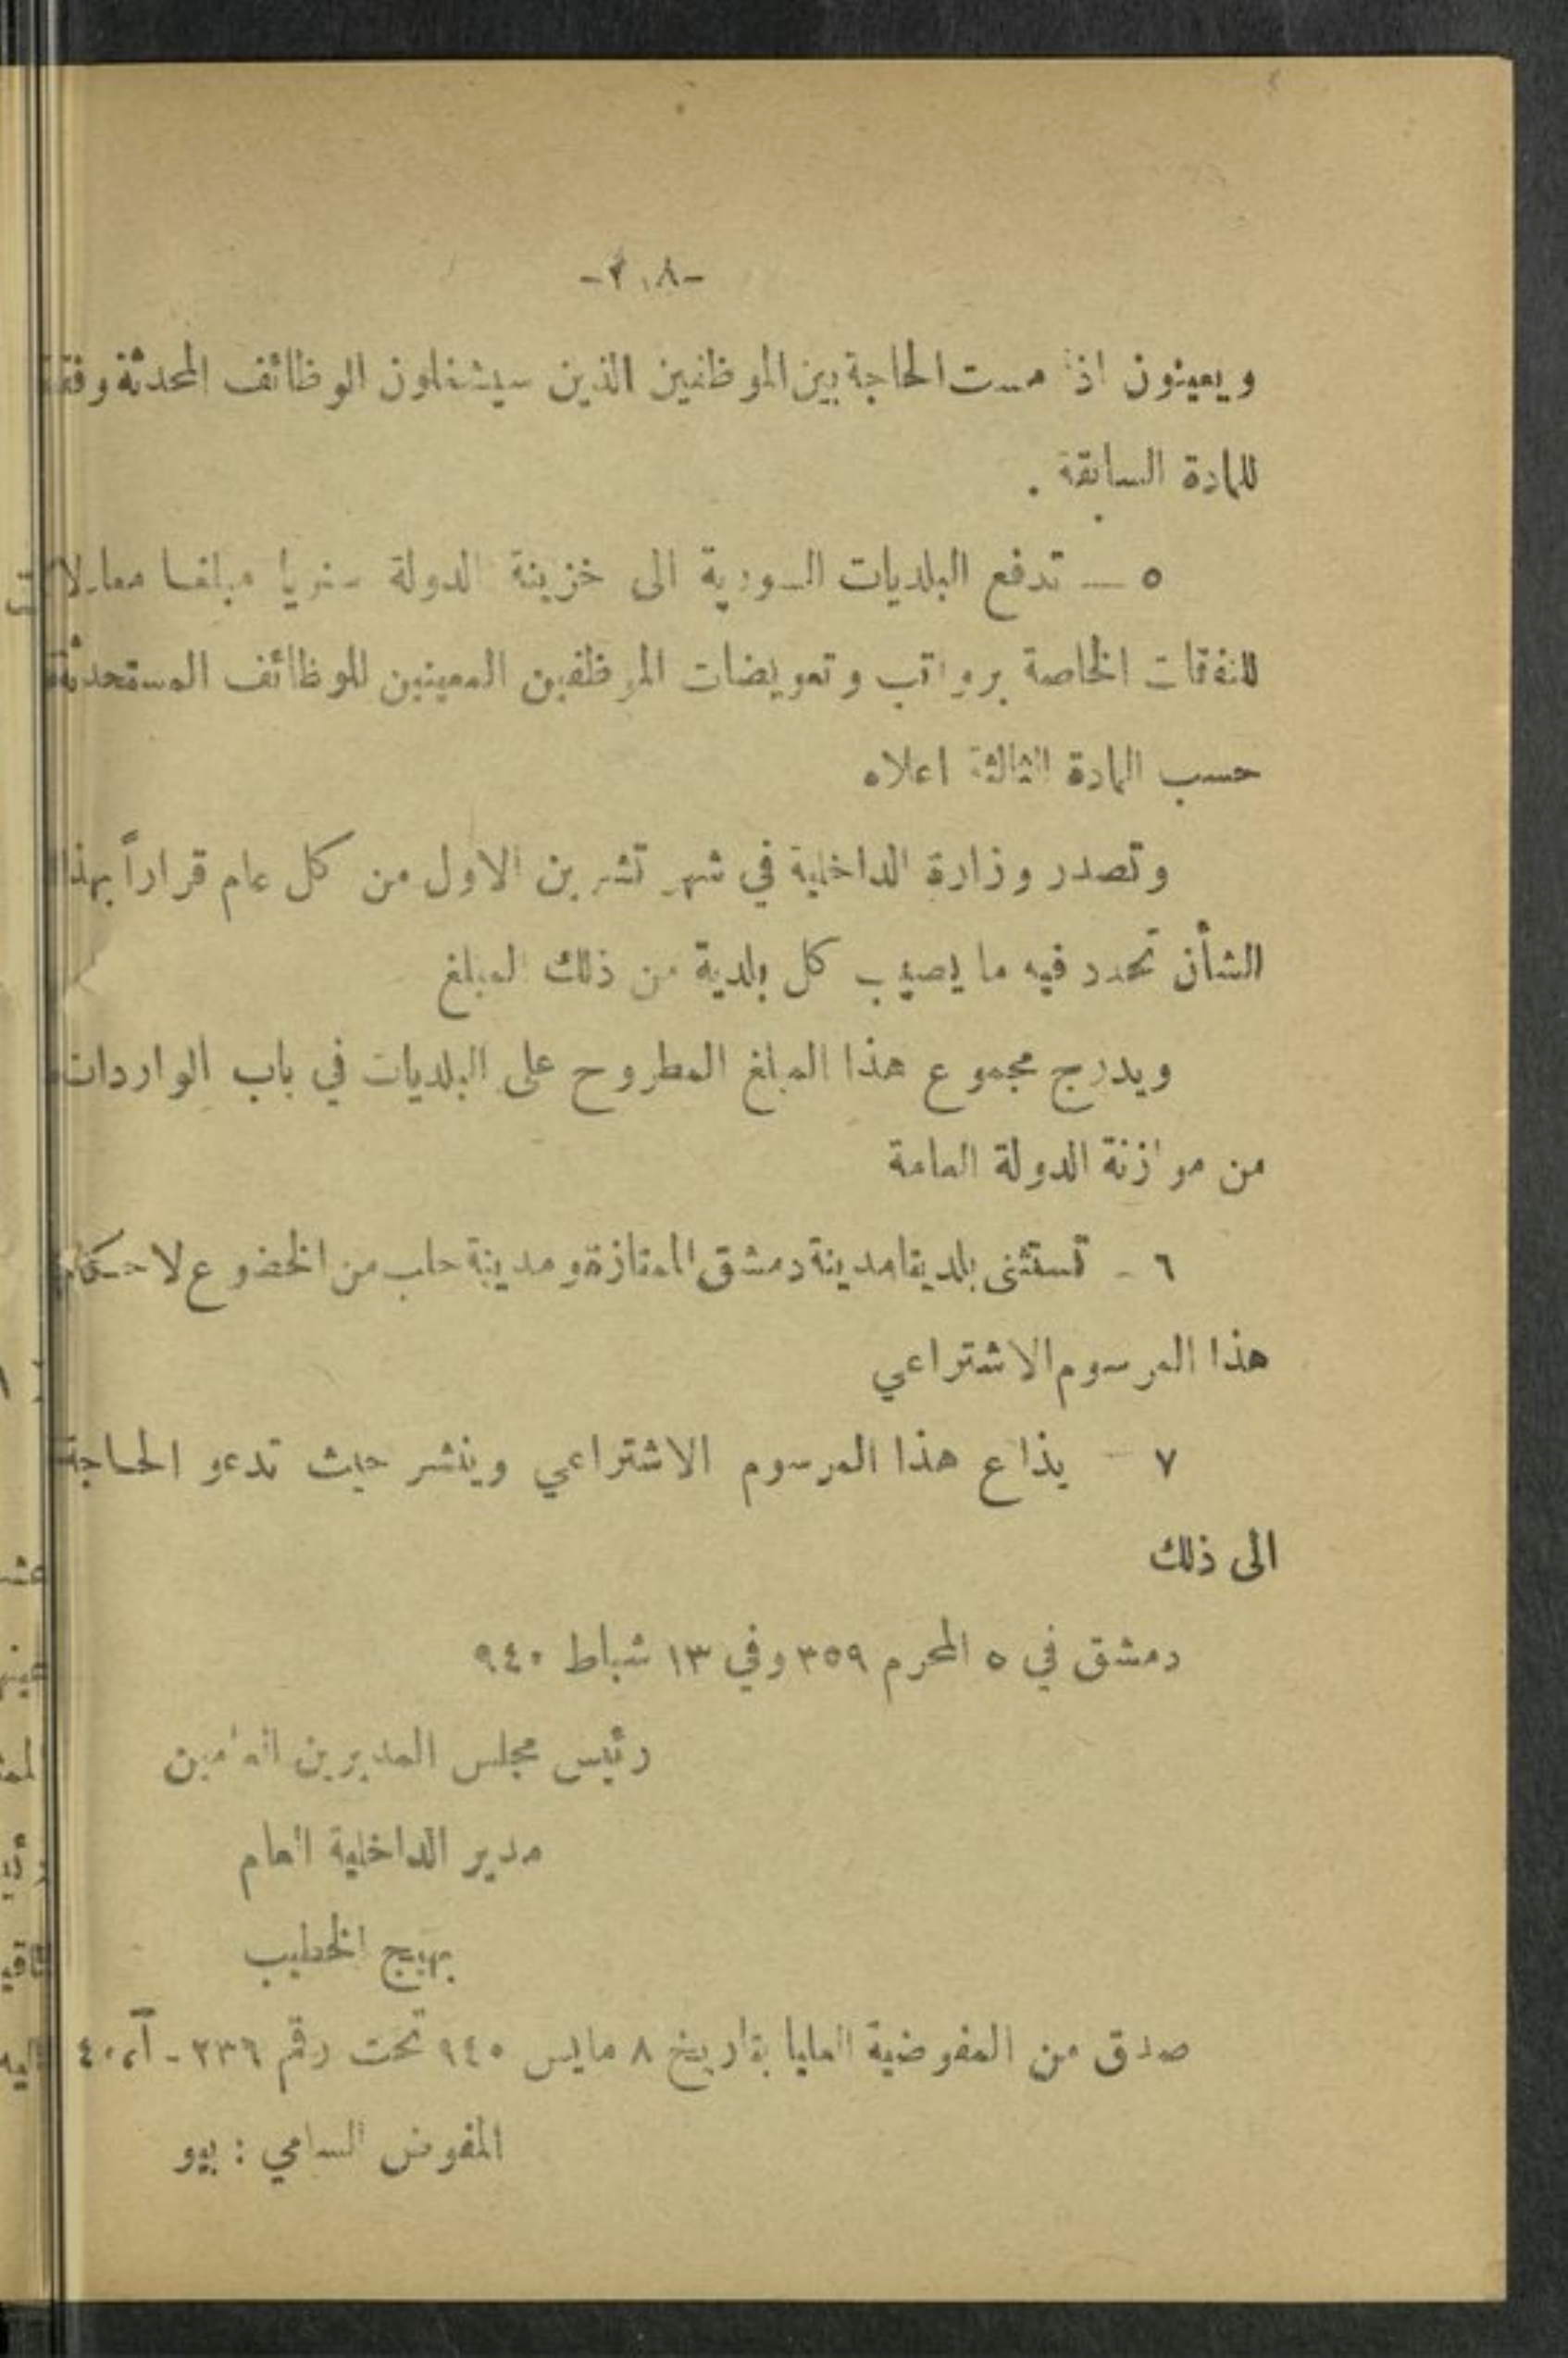 -٢٠٨-
ويعينون اذا مست الحاجة بين الموظفين الذين سيشغلون الوظائف المحدثة وفقا
للمادة السابقة .
٥ — تدفع البلديات السورية الى خزينة الدولة سنويا مبلغا معادلا
للنفقات الخاصة برواتب وتعويضات الموظفين المعينين للوظائف المستحدثة
حسب المادة الثالثة اعلاه
وتصدر وزارة الداخلية في شهر تشرين الاول من كل عام قراراً بهذا
الشأن تحدد فيه ما يصيب كل بلدية من ذلك المبلغ
ويدرج مجموع هذا المبلغ المطروح على البلديات في باب الواردات
من موازنة الدولة العامة
٦ - تستثنى بلديتا مدينة دمشق الممتازة ومدينة حلب من الخضوع لاحكام
هذا المرسوم الاشتراعي
٧ - يذاع هذا المرسوم الاشتراعي وينشر حيث تدعو الحاجة
الى ذلك
دمشق في ٥ المحرم ٣٥٩ وفي ١٣ شباط ٩٤٠
رئيس مجلس المديرين العامين
مدير الداخلية العام
بهيج الخطيب
صدق من المفوضية العليا بتاريخ ٨ مايس ٩٤٠ تحت رقم ٢٣٦ -
المفوض السامي : بيو